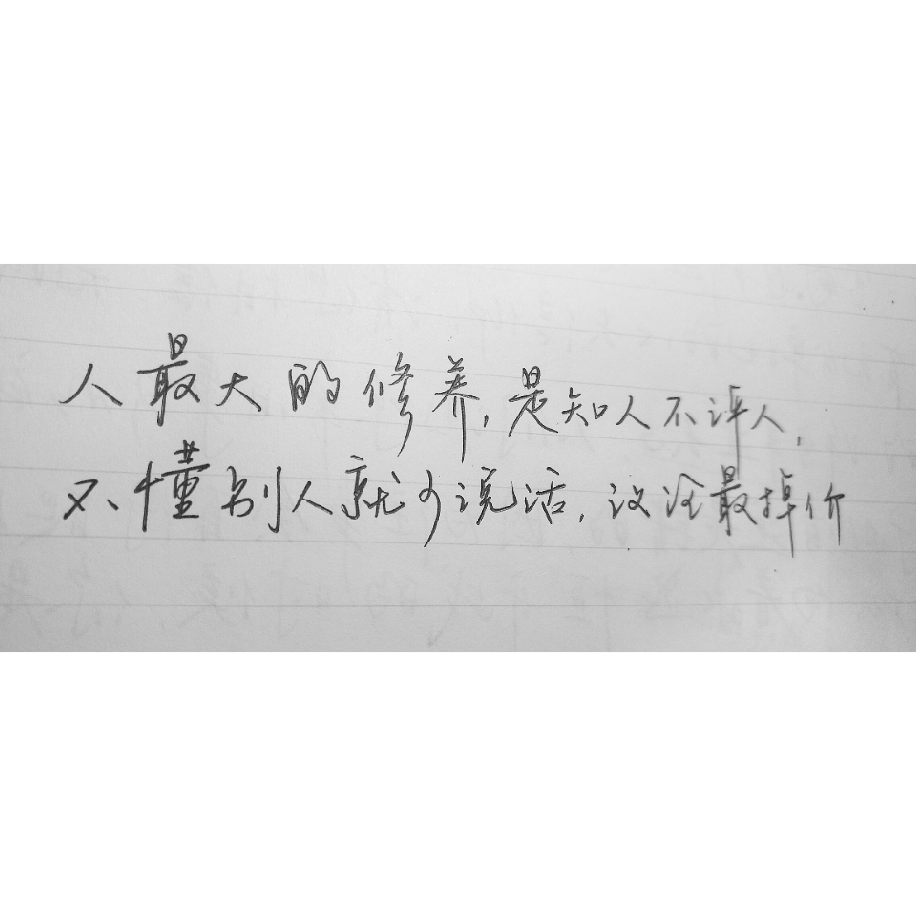 人最大的修养,是知人不评人,
不懂别人就少说话,议论最掉价